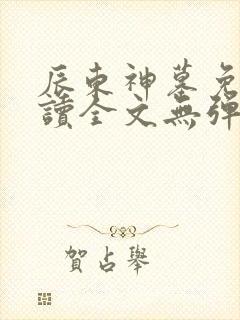 辰東神墓免
讀全文無彈
賀占舉